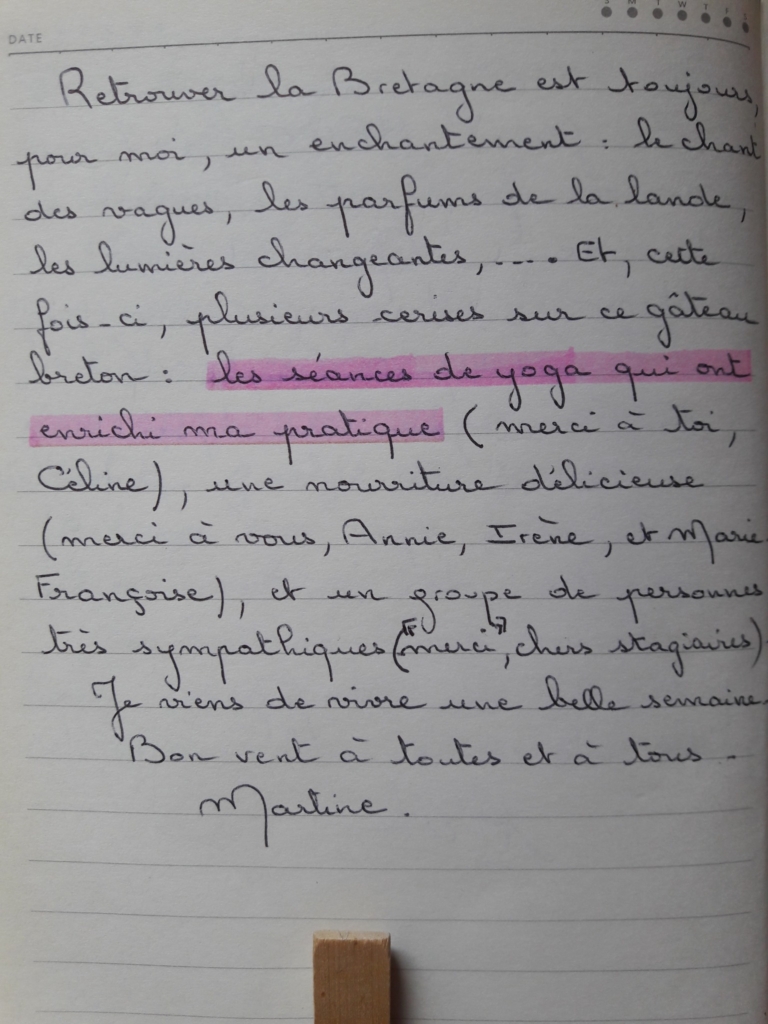 S M T W T F S
DATE
Retrouver la Bretagne est toujours,
pour moi, un enchantement : le chant
des vagues, les parfums de la lande,
les lumières changeantes, .... Et, cette
fois-ci, plusieurs cerises sur ce gâteau
breton : les séances de yoga qui ont
enrichi ma pratique (merci à toi,
Céline), une nourriture délicieuse
(merci à vous, Annie, Irène, et Marie-
Françoise), et un groupe de personnes
très sympathiques (merci, chers stagiaires).
Je viens de vivre une belle semaine.
Bon vent à toutes et à tous.
Martine.